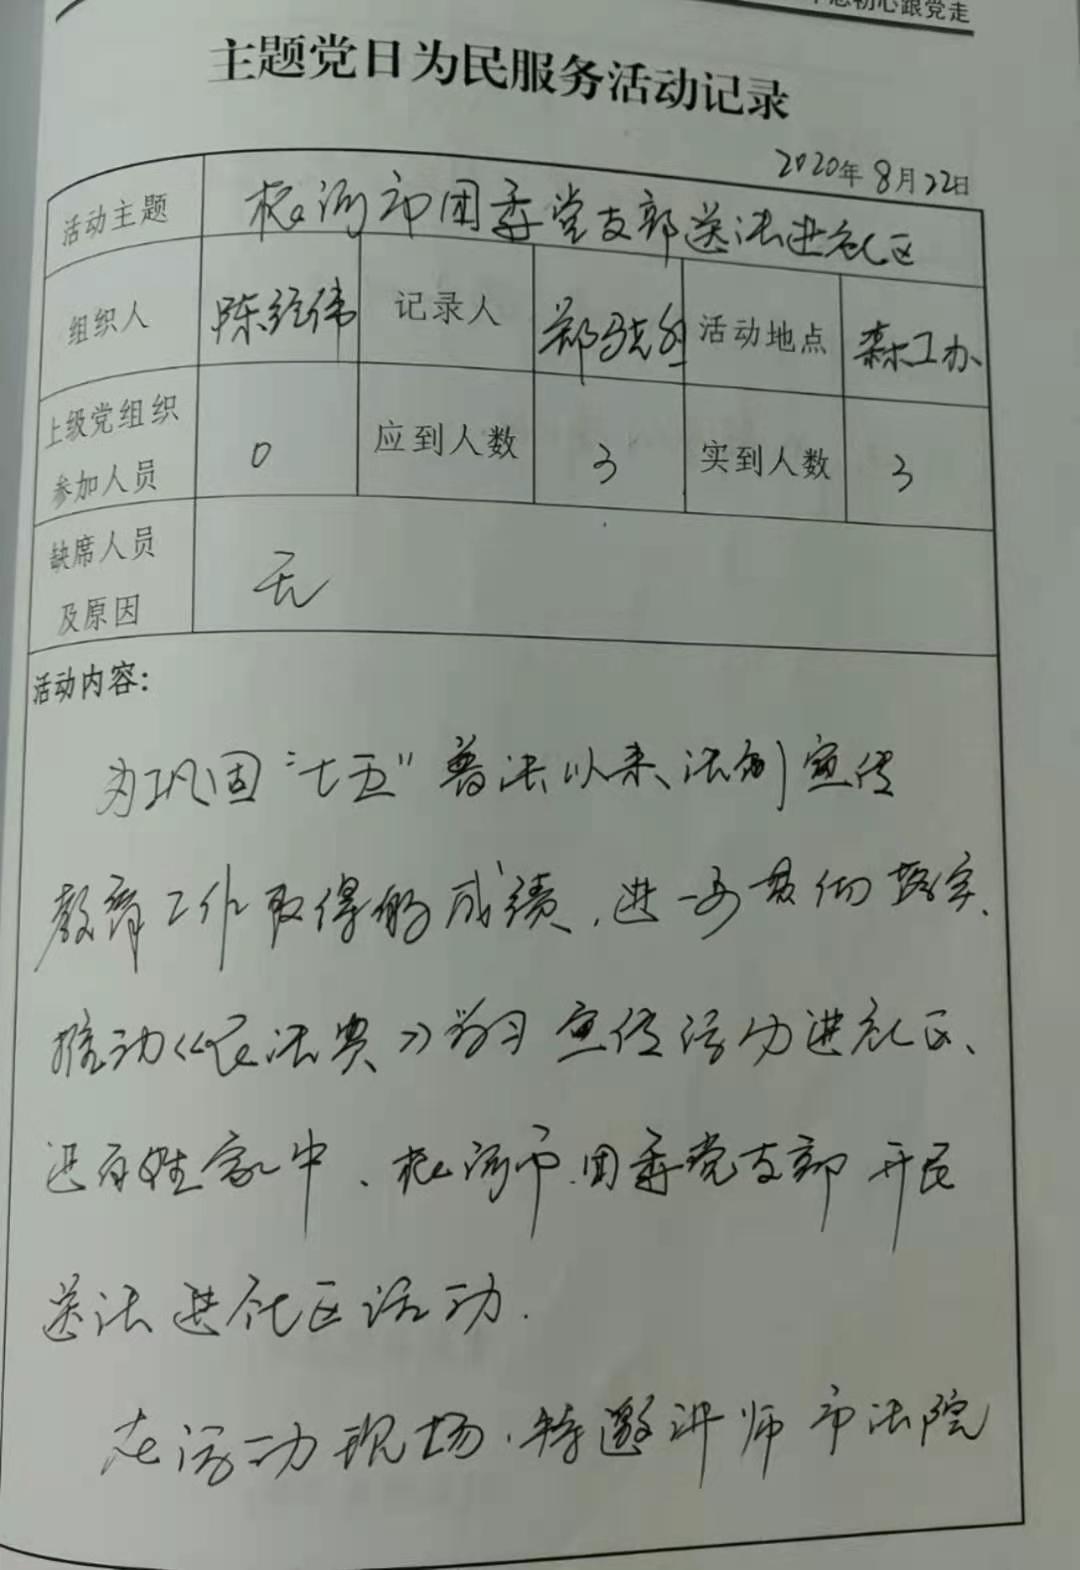 初心跟党走
主题党日为民服务活动记录
2020年8月22日
活动主题 根河市团委党支部送法进社区
组织人 陈经伟 记录人 郑 活动地点 森工办
上级党组织参加人员 0 应到人数 3 实到人数 3
缺席人员及原因 无
活动内容:
为巩固“七五”普法以来法制宣传
教育工作取得的成绩,进一步贯彻落实、
推动《民法典》学习宣传活动进社区、
进百姓家中、根河市团委党支部开展
送法进社区活动.
在活动现场,特邀讲师市法院